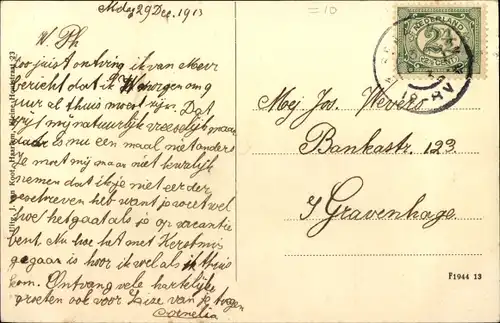 Mdag 29 Dec. 1913
=10
NEDERLAND
2½
CENT
W. Ph
Zoo juist ontving ik van Meer
bericht dat ik Morgen om 9
uur al thuis moet zijn. Dat
spijt mij natuurlijk vreeselijk maar
daar is nu een maal niet anders
Je moet mij maar niet kwalijk
nemen dat ik je niet eer der
geschreven heb want je weet wel
hoe het gaat als je op vacantie
bent. Nu hoe het met Kerstmis
gegaan is hoor ik wel als ik thuis
kom. Ontvang vele hartelijke
groeten ook voor Lize van je
Cornelia
Mej Jos. Wevero
Bankastr. 123
s/ Gravenhage
F1944 13
Haarlem, Kleine Houtstraat 23